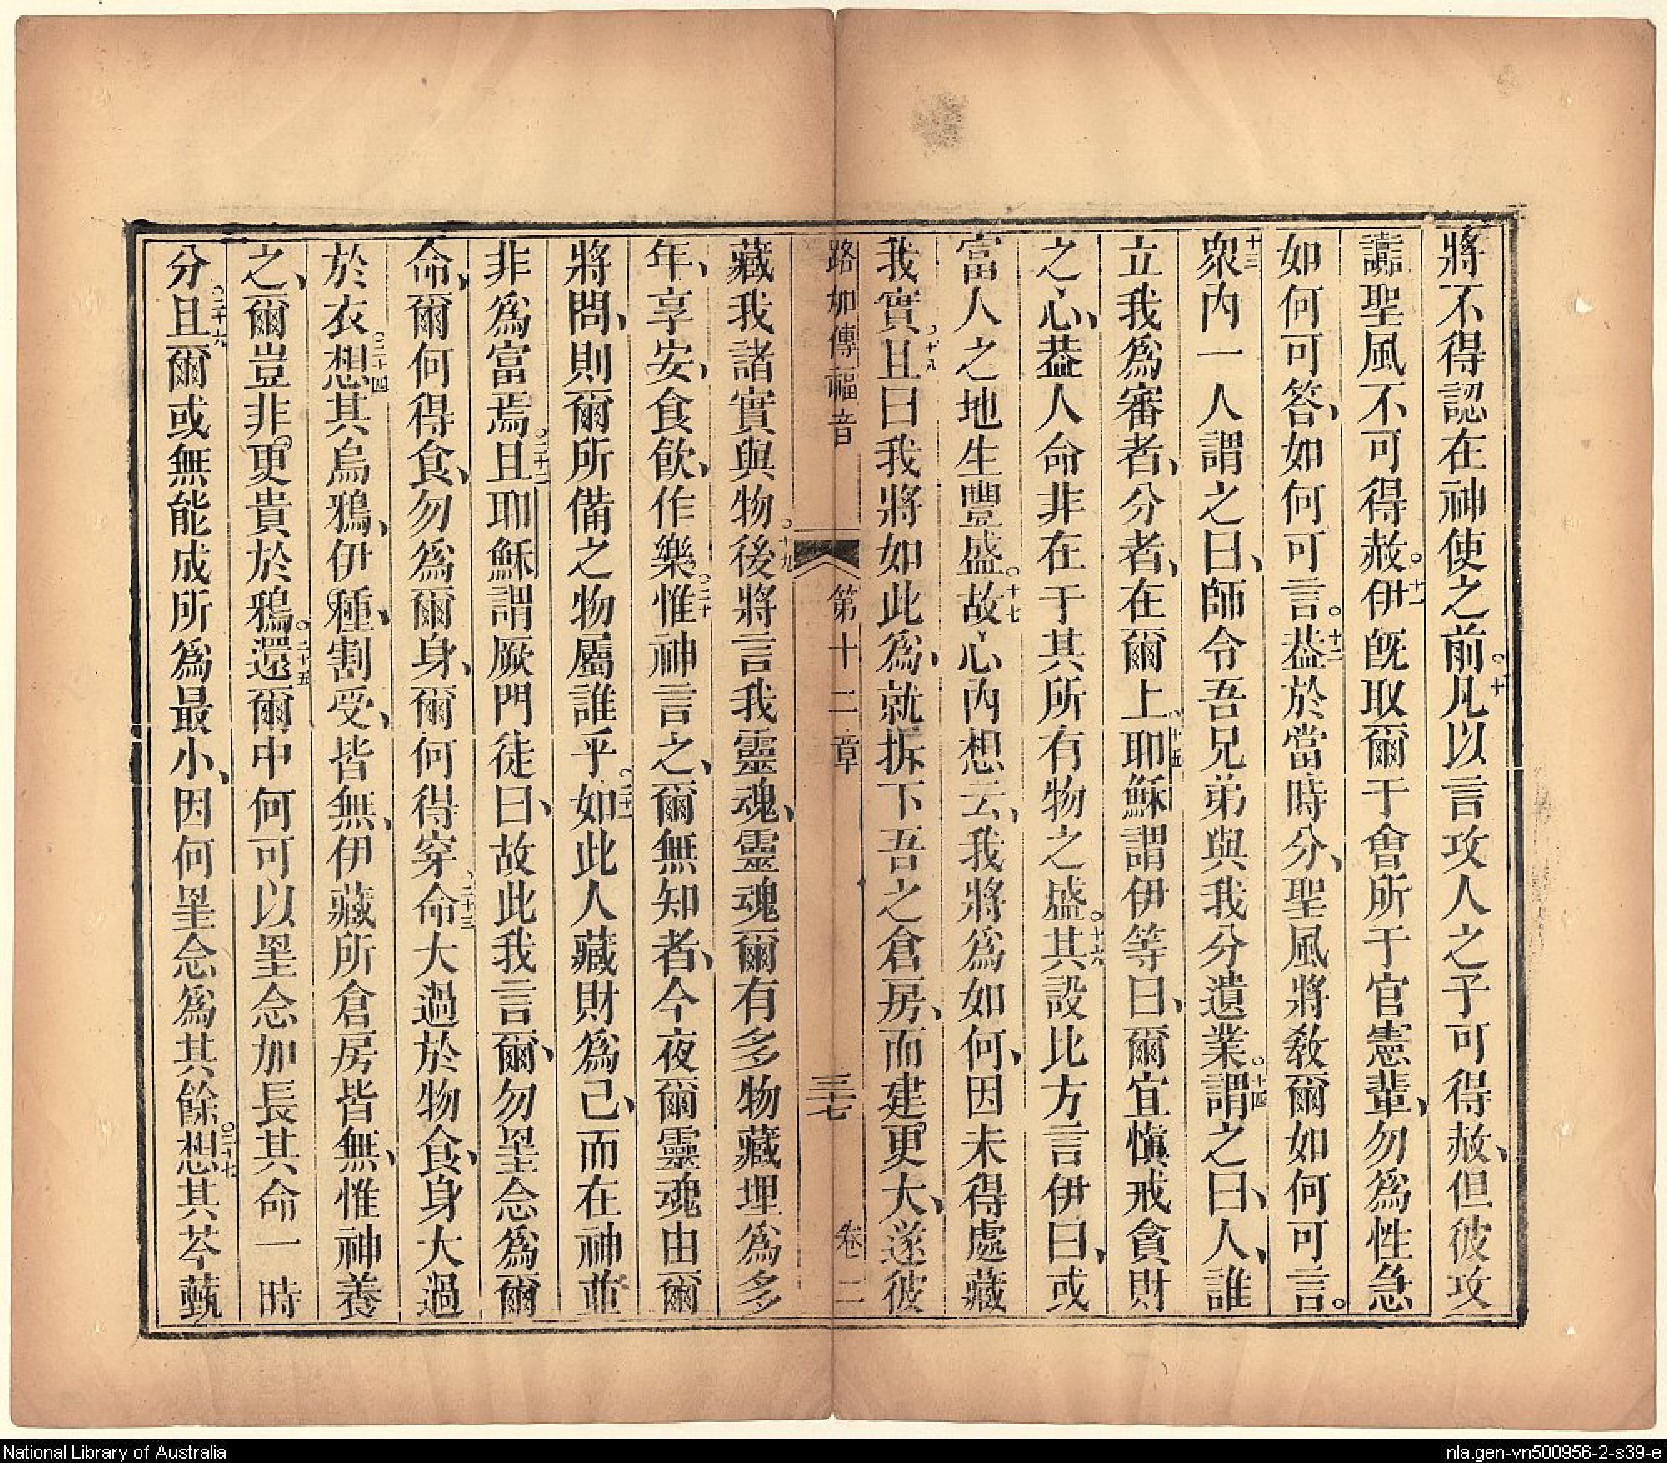 將不得認在神使之前。十凡以言攻人之子可得赦、但彼攻
讟聖風不可得赦。十一伊旣取爾于會所于官憲輩、勿為性急
如何可答、如何可言。十二葢於當時分、聖風將教爾如何可言。
十三衆內一人謂之曰、師令吾兄弟與我分遺業。十四謂之曰、人、誰
立我為審者、分者、在爾上、十五耶穌謂伊等曰、爾宜愼戒貪財
之心、葢人命非在于其所有物之盛。十六其設比方言伊曰、或
富人之地生豐盛。十七故心內想云、我將為如何、因未得處藏
我實。十八且曰我將如此為、就拆下吾之倉房、而建更大、遂彼
路加傳福音 第十二章 三十七 卷二
藏我諸實與物。十九後將言我靈魂、靈魂爾有多多物藏埋為多
年、享安、食飲、作樂。二十惟神言之、爾無知者、今夜爾靈魂由爾
將問、則爾所備之物屬誰乎。二十一如此人藏財為己、而在神並
非為富焉。二十二且耶穌謂厥門徒曰、故此我言爾、勿罣念為爾
命、爾何得食、勿為爾身、爾何得穿、二十三命大過於物食、身大過
於衣。二十四想其烏鴉、伊種、割受、皆無、伊藏所倉房皆無、惟神養
之、爾豈非更貴於鴉。二十五還爾中何可以罣念加長其命一時
分。二十六且爾或無能成所為最小、因何罣念為其餘。二十七想其苓藝